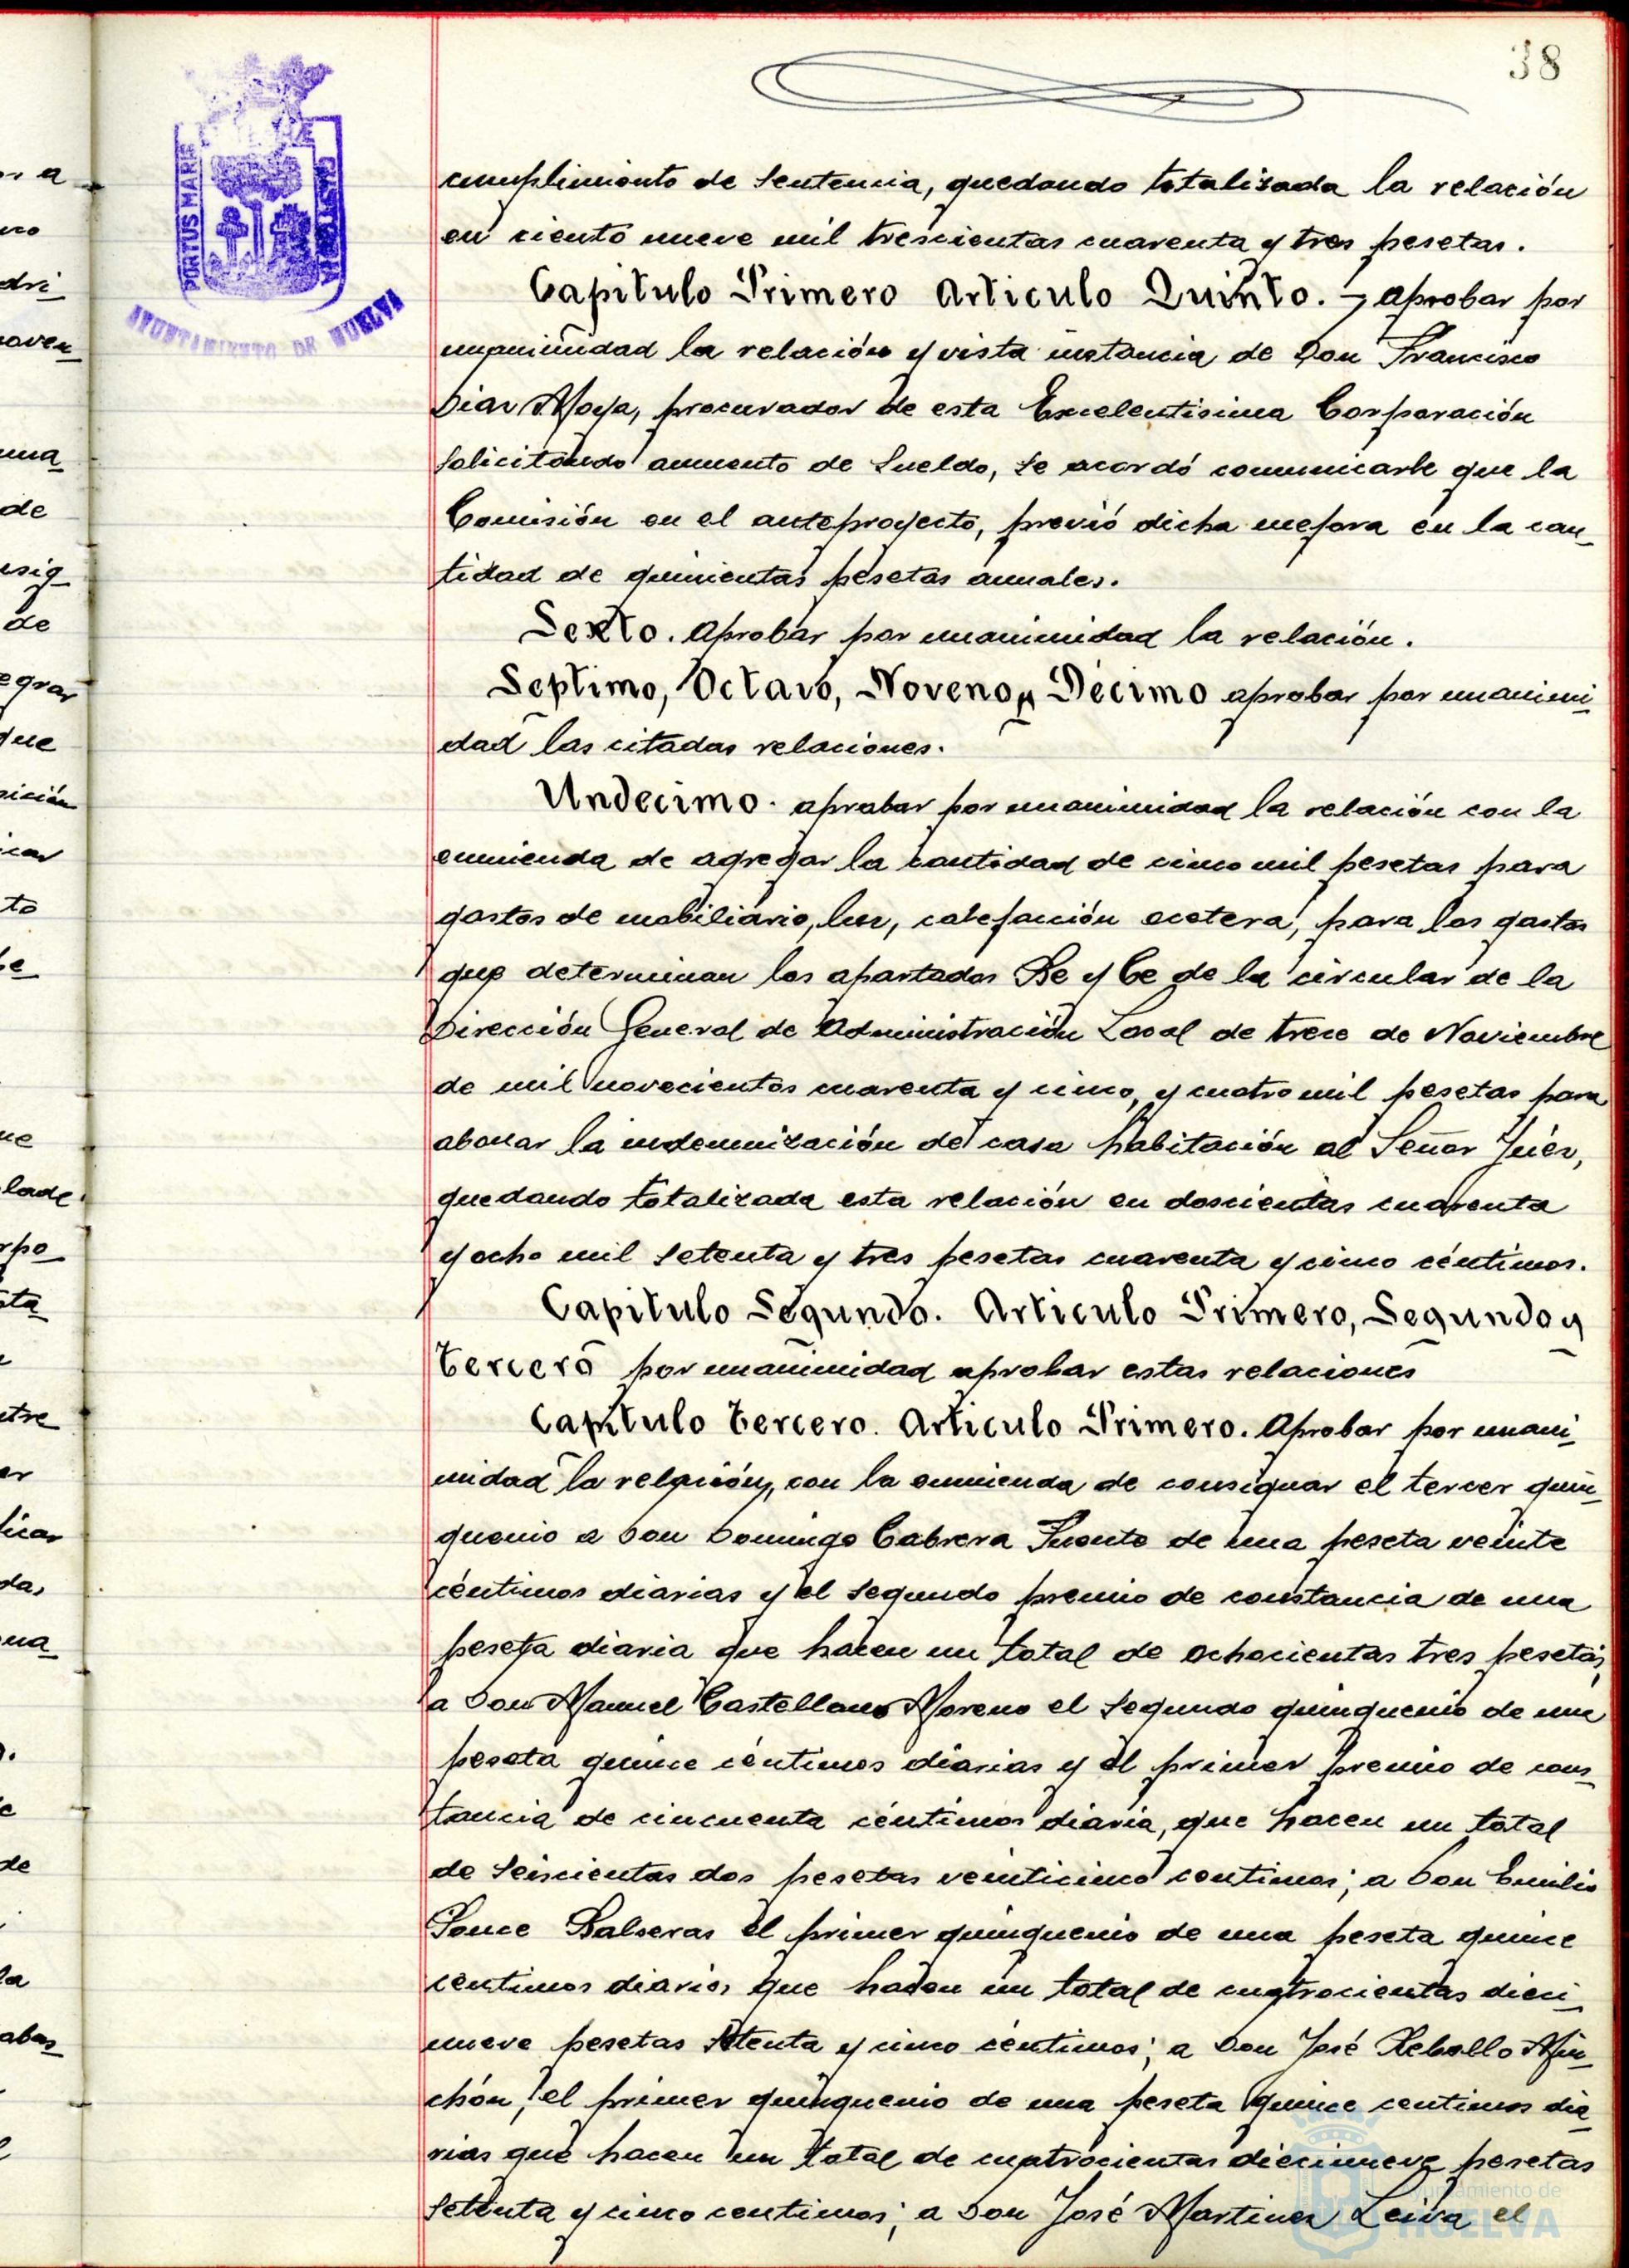 38
PORTUS MARIS
AYUNTAMIENTO DE HUELVA
cumplimiento de Sentencia, quedando totalizada la relación
en ciento nueve mil trescientas cuarenta y tres pesetas.
Capitulo Primero Articulo Quinto. - aprobar por
unanimidad la relación y vista instancia de Don Francisco
Diaz Moya, procurador de esta Excelentisima Corporación
Solicitando aumento de Sueldo, se acordó comunicarle que la
Comisión en el anteproyecto, previó dicha mejora en la can_
tidad de quinientas pesetas anuales.
Sexto. Aprobar por unanimidad la relación.
Septimo, Octavo, Noveno y Decimo aprobar por unanimi_
dad las citadas relaciones.
Undecimo. aprobar por unanimidad la relación con la
enmienda de agregar la cantidad de cinco mil pesetas para
gastos de mobiliario, luz, calefacción ecetera, para los gastos
que determinan los apartados Be y Ce de la circular de la
Dirección General de Administración Local de trece de Noviembre
de mil novecientos cuarenta y cinco, y cuatro mil pesetas para
abonar la indemnización de casa habitación al Señor Juez,
quedando totalizada esta relación en doscientas cuarenta
y ocho mil setenta y tres pesetas cuarenta y cinco céntimos.
Capitulo Segundo. Articulo Primero, Segundo y
Tercero por unanimidad aprobar estas relaciones
Capitulo Tercero. Articulo Primero. Aprobar por unani_
midad la relación, con la enmienda de consignar el tercer quin_
quenio a Don Domingo Cabrera Puente de una peseta veinte
céntimos diarias y el segundo premio de constancia de una
peseta diaria que hacen un total de ochocientas tres pesetas;
a Don Manuel Castellano Moreno el segundo quinquenio de una
peseta quince céntimos diarias y el primer premio de cons_
tancia de cincuenta céntimos diaria, que hacen un total
de Seiscientas dos pesetas veinticinco centimos; a Don Emilio
Ponce Balseras el primer quinquenio de una peseta quince
centimos diarios que hacen un total de cuatrocientas dieci_
nueve pesetas setenta y cinco céntimos; a Don José Rebollo Min_
chón, el primer quinquenio de una peseta quince centimos dia_
rias que hacen un total de cuatrocientas diecinueve pesetas
Setenta y cinco centimos; a Don José Martinez Leiva el
Ayuntamiento de
HUELVA